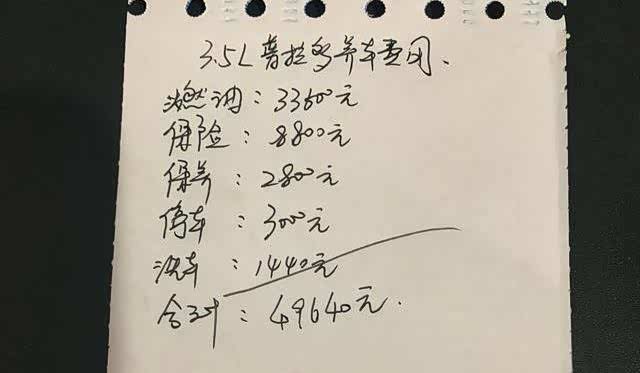 3.5L普拉多养车费用.
燃油:33600元
保险:8800元
保养:2800元
停车:3000元
洗车:1440元
合计:49640元.